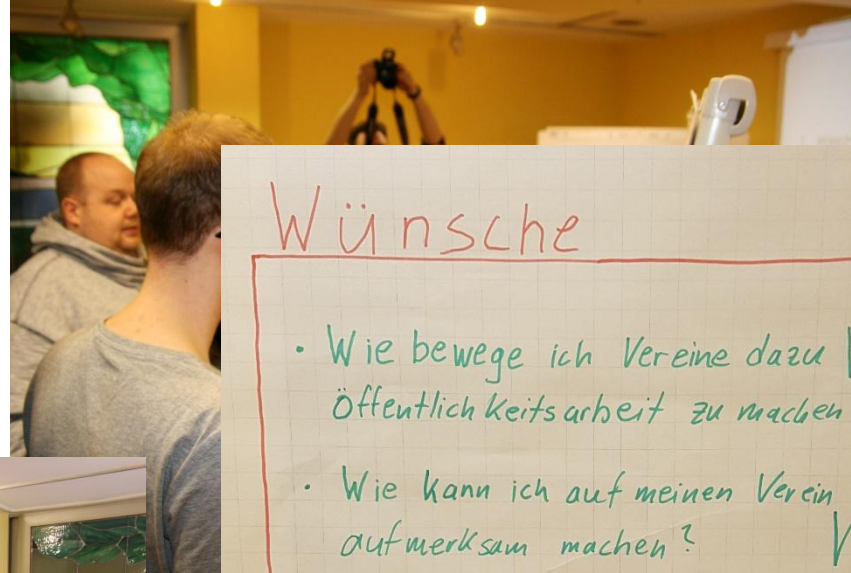 Wünsche
• Wie bewege ich Vereine dazu
Öffentlichkeitsarbeit zu machen
• Wie kann ich auf meinen Verein
aufmerksam machen?